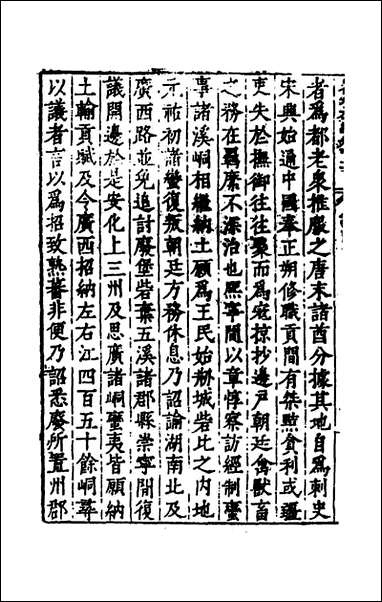 者爲都老衆推嚴之唐末諸酋分據其地自爲刺史
宋興始通中國奉正朔修職貢間有桀黠貪利或疆
吏失於撫御往往聚而爲寇掠抄邊戸朝廷禽獸畜
之務在羈縻不深治也熙寧間以章惇察訪經制蠻
事諸溪峒相繼納土願爲王民始剏城砦比之内地
元祐初諸蠻復叛朝廷方務休息乃詔諭湖南北及
廣西路並免追討廢堡砦棄五溪諸郡縣崇寧間復
議開邊於是安化上三州及思廣諸峒蠻夷皆願納
土輸貢賦及今廣西招納左右江四百五十餘峒尋
以議者言以爲招致熟蕃非便乃詔悉廢所置州郡